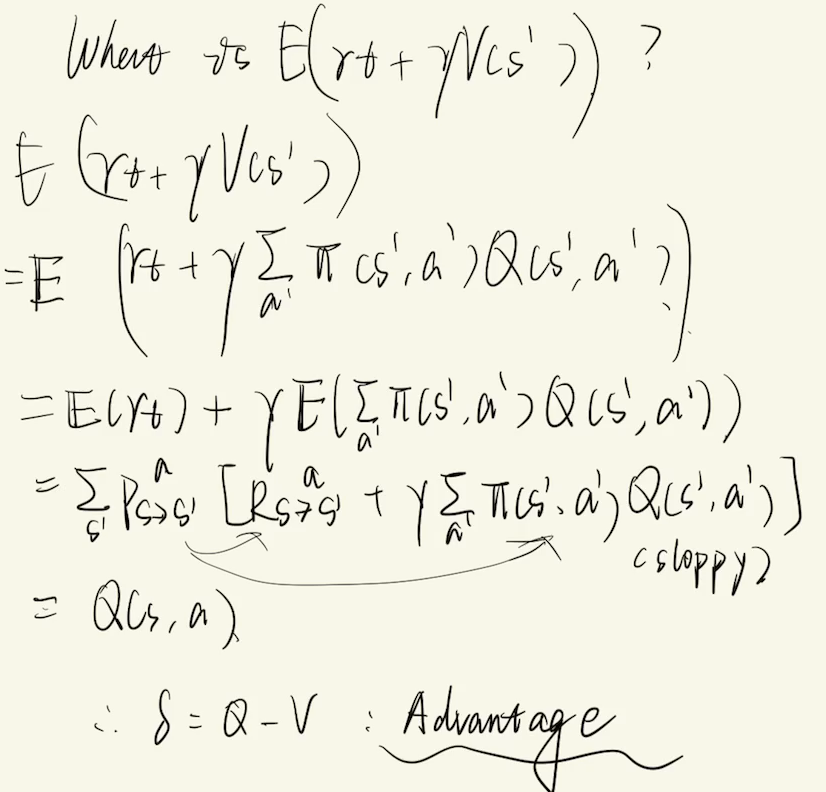 What is E(rt + γV(s'))?
E(rt + γV(s'))
= E (rt + γ Σ_a' π(s', a')Q(s', a'))
= E(rt) + γE(Σ_a' π(s', a')Q(s', a'))
= Σ_s' P^a_s→s' [R^a_s→s' + γ Σ_a' π(s', a')Q(s', a')]
(sloppy)
= Q(s, a)
∴ δ = Q - V : Advantage